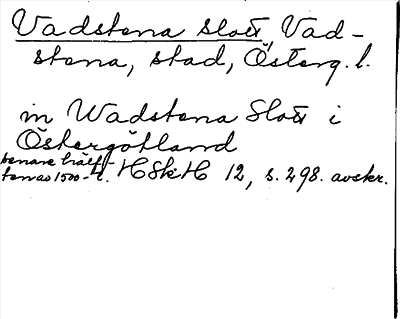 Vadstena slott, Vad-
stena, stad, Österg. l.
in Wadstena Slott i
Östergötland
senare hälf-
ten av 1500-t. HSkH 12, s. 298. avskr.